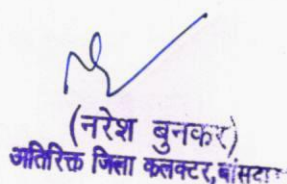 (नरेश बुनकर)
अतिरिक्त जिला कलक्टर,